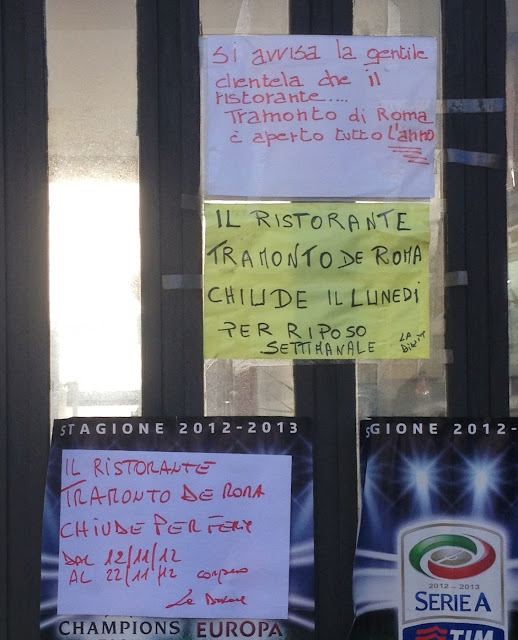 Si avvisa la gentile
clientela che il
ristorante....
Tramonto di Roma
è aperto tutto l'anno
IL RISTORANTE
TRAMONTO DE ROMA
CHIUDE IL LUNEDì
PER RIPOSO
SETTIMANALE
LA
STAGIONE 2012-2013
IL RISTORANTE
TRAMONTO DE ROMA
CHIUDE PER FERIE
DAL 12/11/12
AL 22/11/12
CHAMPIONS EUROPA
GIONE 2012-
2012 - 2013
SERIE A
TIM